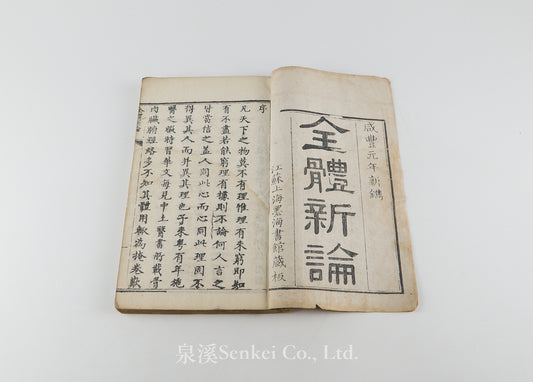 咸豐元年新鐫
全體新論
江蘇上海墨海書館藏板
序
凡天下之物莫不有理惟理有未窮即知
有不盡若能窮理有據則不論何人言之
皆當信之盖人同此心而心同此理固不
得異其人而并異其理也予來粵有年施
醫之暇時習華文每見中土醫書所載骨
肉臟腑經絡多不知其體用輒為掩卷歎
泉溪Senkei Co., Ltd.